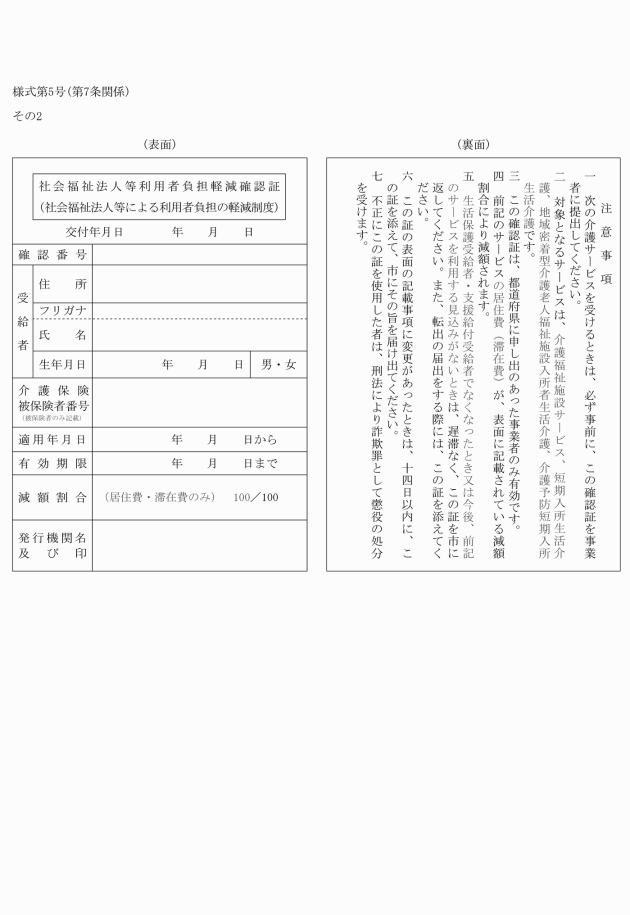 様式第5号(第7条関係)
その2
(表面)
社会福祉法人等利用者負担軽減確認証
(社会福祉法人等による利用者負担の軽減制度)
交付年月日　　　　年　　月　　日
確認番号
受給者
住所
フリガナ
氏名
生年月日　　　　年　　月　　日　男・女
介護保険
被保険者番号
(被保険者のみ記載)
適用年月日　　　　年　　月　　日から
有効期限　　　　年　　月　　日まで
減額割合　(居住費・滞在費のみ)　100／100
発行機関名
及び印
(裏面)
注意事項
一　次の介護サービスを受けるときは、必ず事前に、この確認証を事業
者に提出してください。
二　対象となるサービスは、介護福祉施設サービス、短期入所生活介
護、地域密着型介護老人福祉施設入所者生活介護、介護予防短期入所
生活介護です。
三　この確認証は、都道府県に申し出のあった事業者のみ有効です。
四　前記のサービスの居住費（滞在費）が、表面に記載されている減額
割合により減額されます。
五　生活保護受給者・支援給付受給者でなくなったとき又は今後、前記
のサービスを利用する見込みがないときは、遅滞なく、この証を市に
返してください。また、転出の届出をする際には、この証を添えてく
ださい。
六　この証の表面の記載事項に変更があったときは、十四日以内に、こ
の証を添えて、市にその旨を届け出てください。
七　不正にこの証を使用した者は、刑法により詐欺罪として懲役の処分
を受けます。